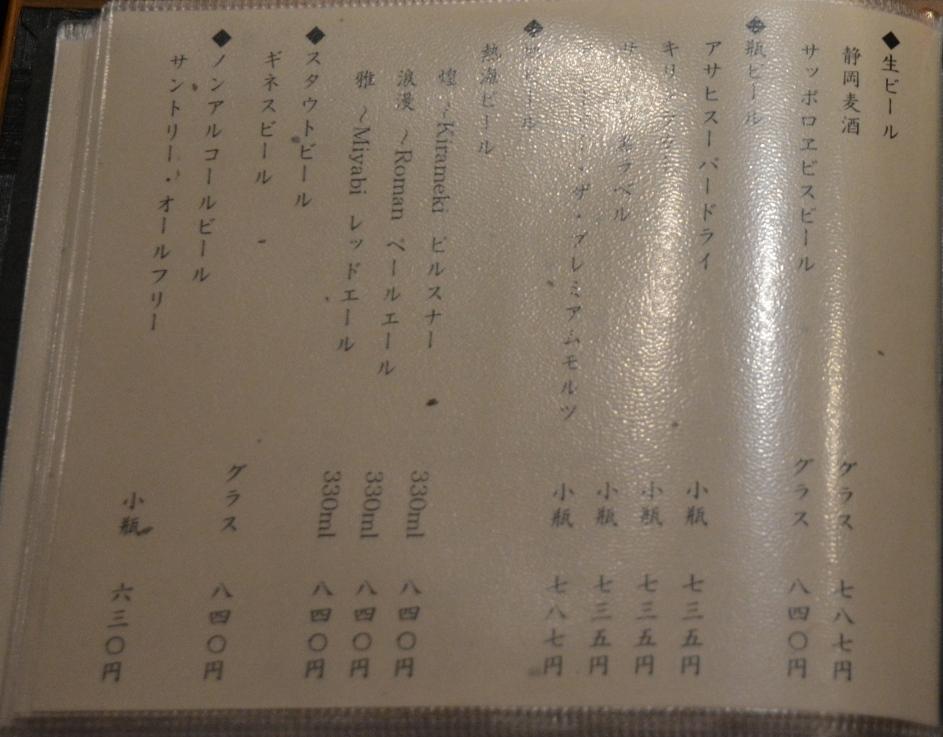 ◆生ビール
静岡麦酒 グラス 七八七円
サッポロヱビスビール グラス 八四〇円
◆瓶ビール
アサヒスーパードライ 小瓶 七三五円
キリ 小瓶 七三五円
サ ラベル 小瓶 七三五円
ザ・プレミアムモルツ 小瓶 七八七円
◆地ビール
熱海ビール
煌 ~Kirameki ピルスナー 330ml 八四〇円
浪漫 ~Roman ペールエール 330ml 八四〇円
雅 ~Miyabi レッドエール 330ml 八四〇円
◆スタウトビール
ギネスビール グラス 八四〇円
◆ノンアルコールビール
サントリー・オールフリー 小瓶 六三〇円